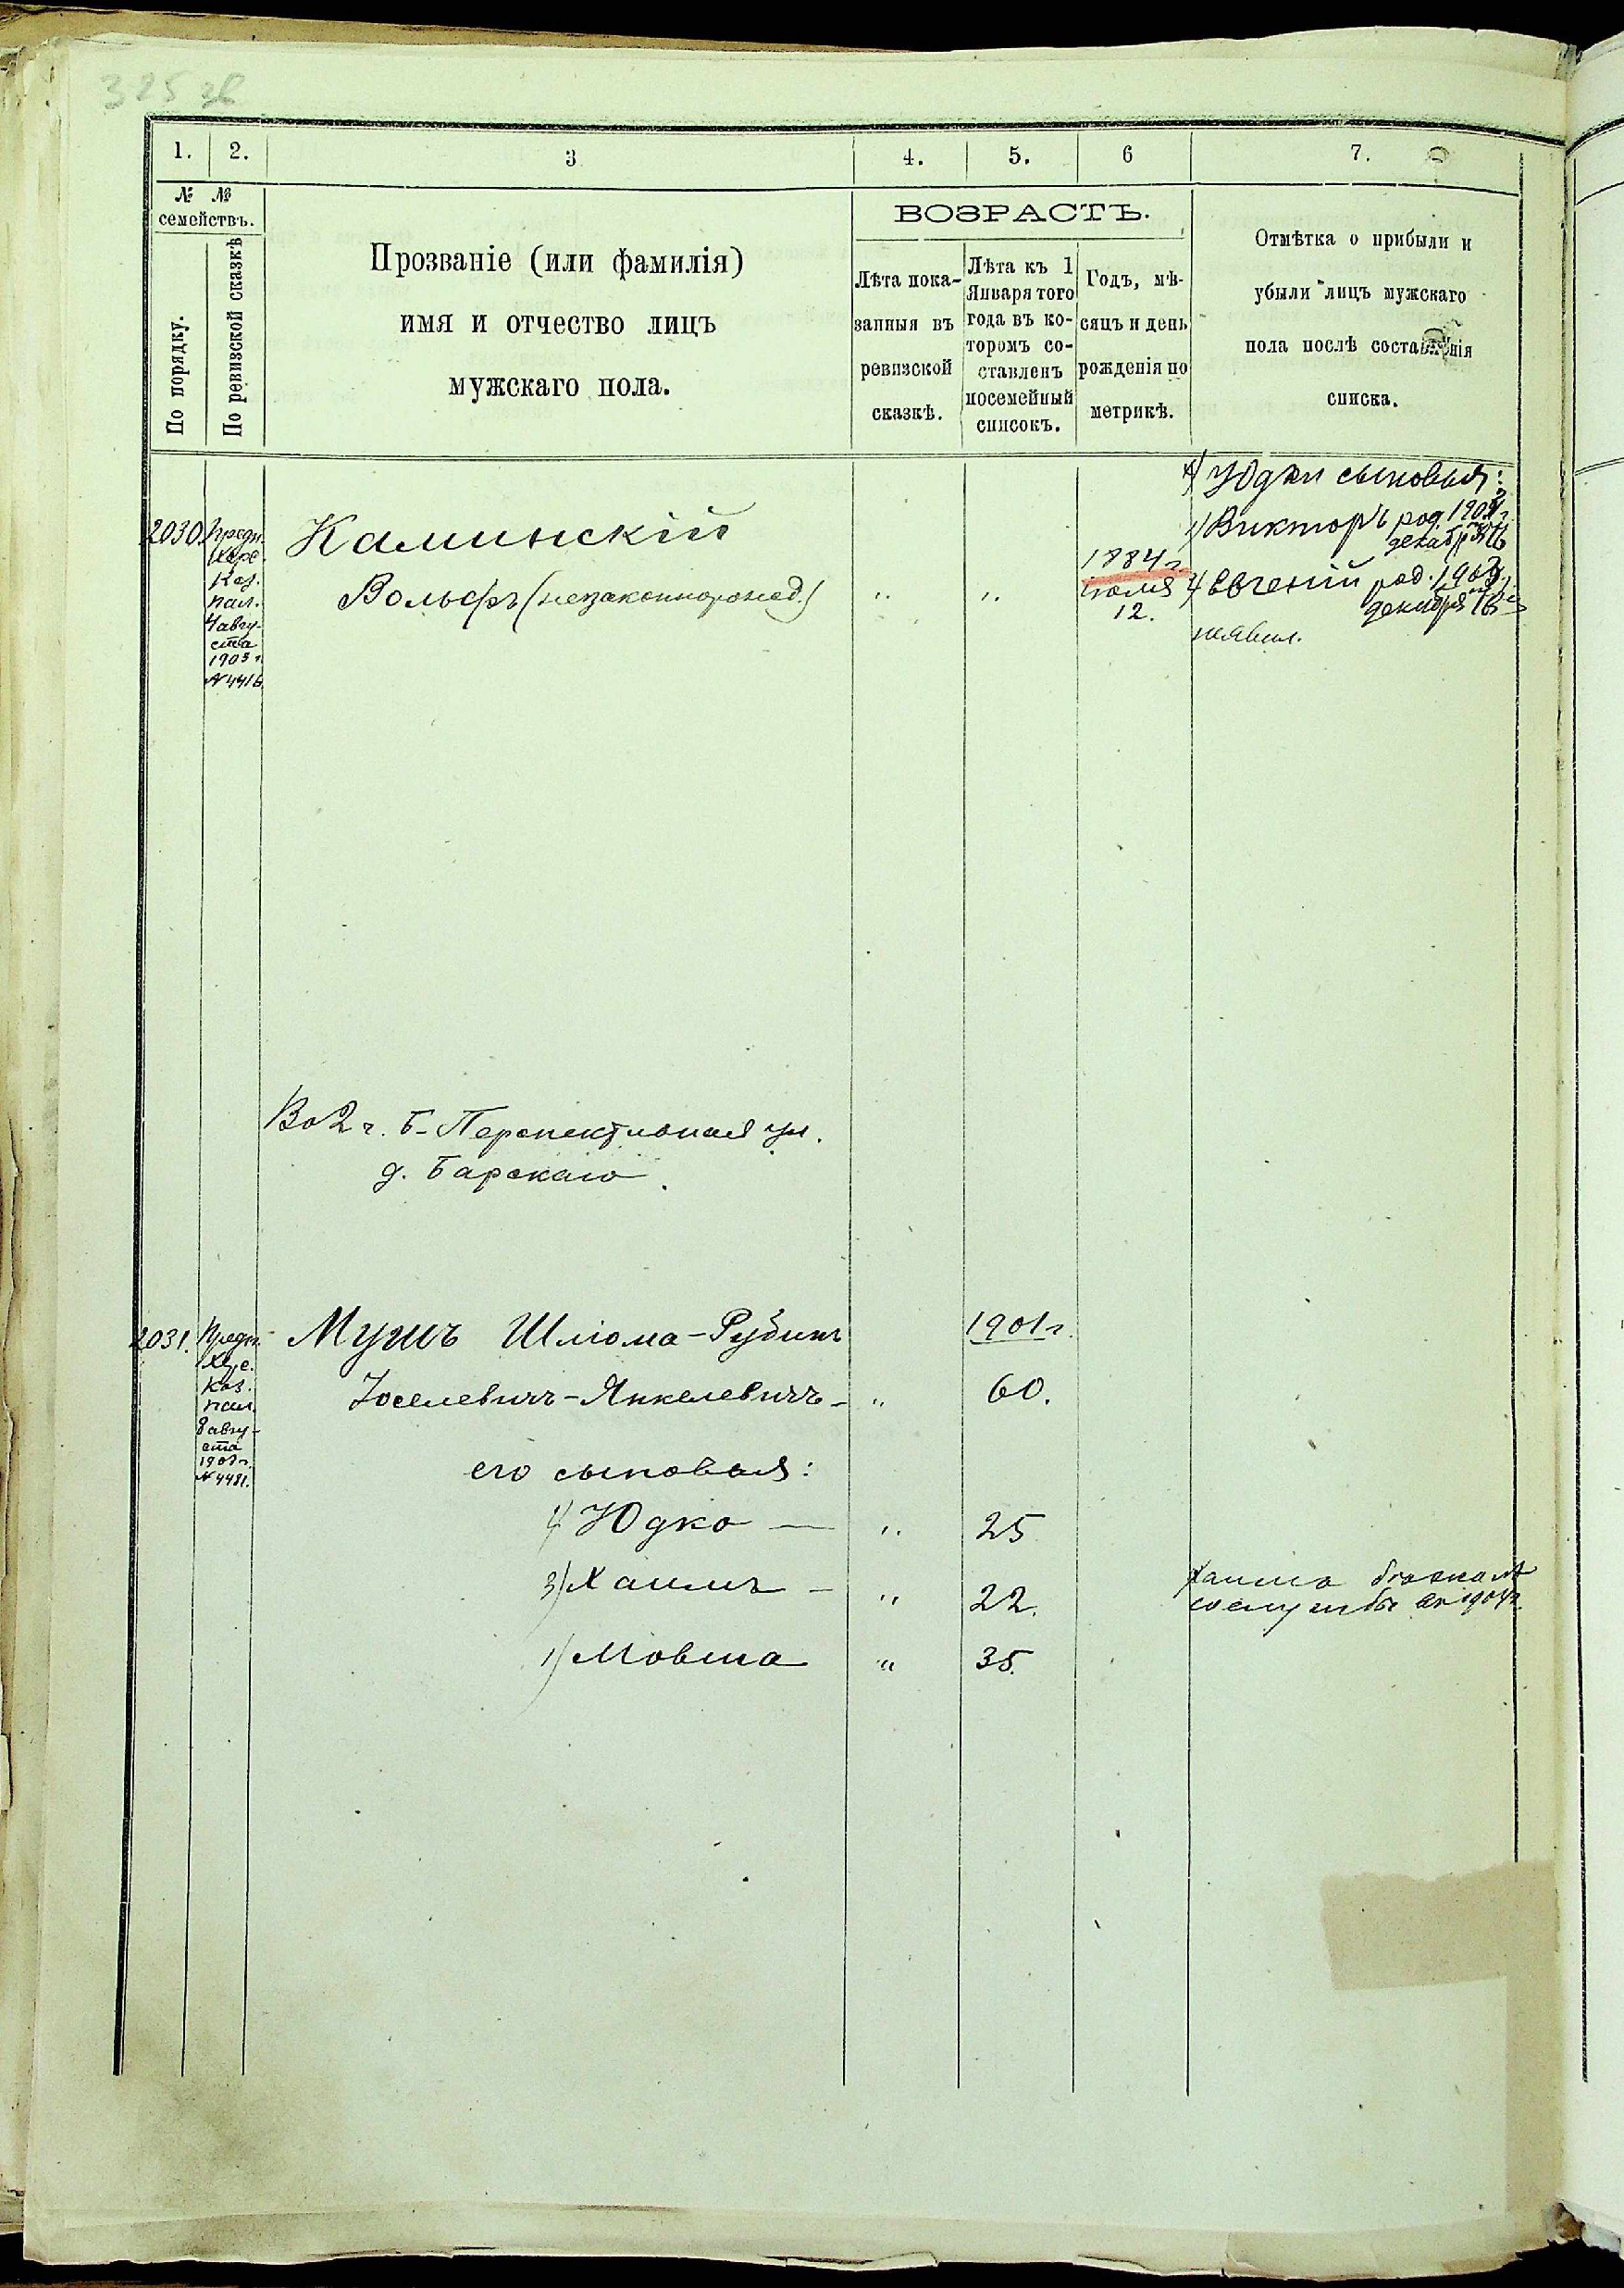 325 зв
1. 2. 3 4. 5. 6 7.
№ №
семействъ.
По порядку.
По ревизской сказкѣ
Прозваніе (или фамилія)
имя и отчество лицъ
мужскаго пола.
ВОЗРАСТЪ.
Лѣта пока-
занныя въ
ревизской
сказкѣ.
Лѣта къ 1
Января того
года въ ко-
торомъ со-
ставленъ
посемейный
списокъ.
Годъ, мѣ-
сяцъ и день
рожденія по
метрикѣ.
Отмѣтка о прибыли и
убыли лицъ мужскаго
пола послѣ составленія
списка.
2030.
Предп.
Хер.
Каз.
пал.
4 авгу-
ста
1903 г.
№ 4416
Каминскій
Вольфъ (незаконнорожд.) " "
1884 г.
іюля
12.
Юдки сыновья:
1) Викторъ род.
декабря
2) Евгеній род.
декабря
Во 2 ч. Б-Перспективная ул.
д. Барскаго.
2031.
Предп.
Хер.
Каз.
пал.
8 авгу-
ста
№ 4481.
Мушъ Шлiома-Рубинъ 1901 г.
Іоселевичъ-Янкелевичъ - " 60.
его сыновья:
2) Юдко — " 25
3) Хаимъ - " 22.
1) Мовша " 35.
Хаимъ бѣжалъ
со службы въ 1904 г.